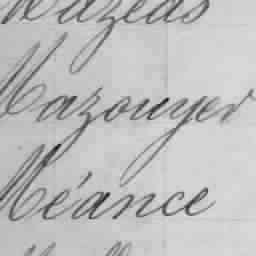 Mazeas
Mazouyer
Méance